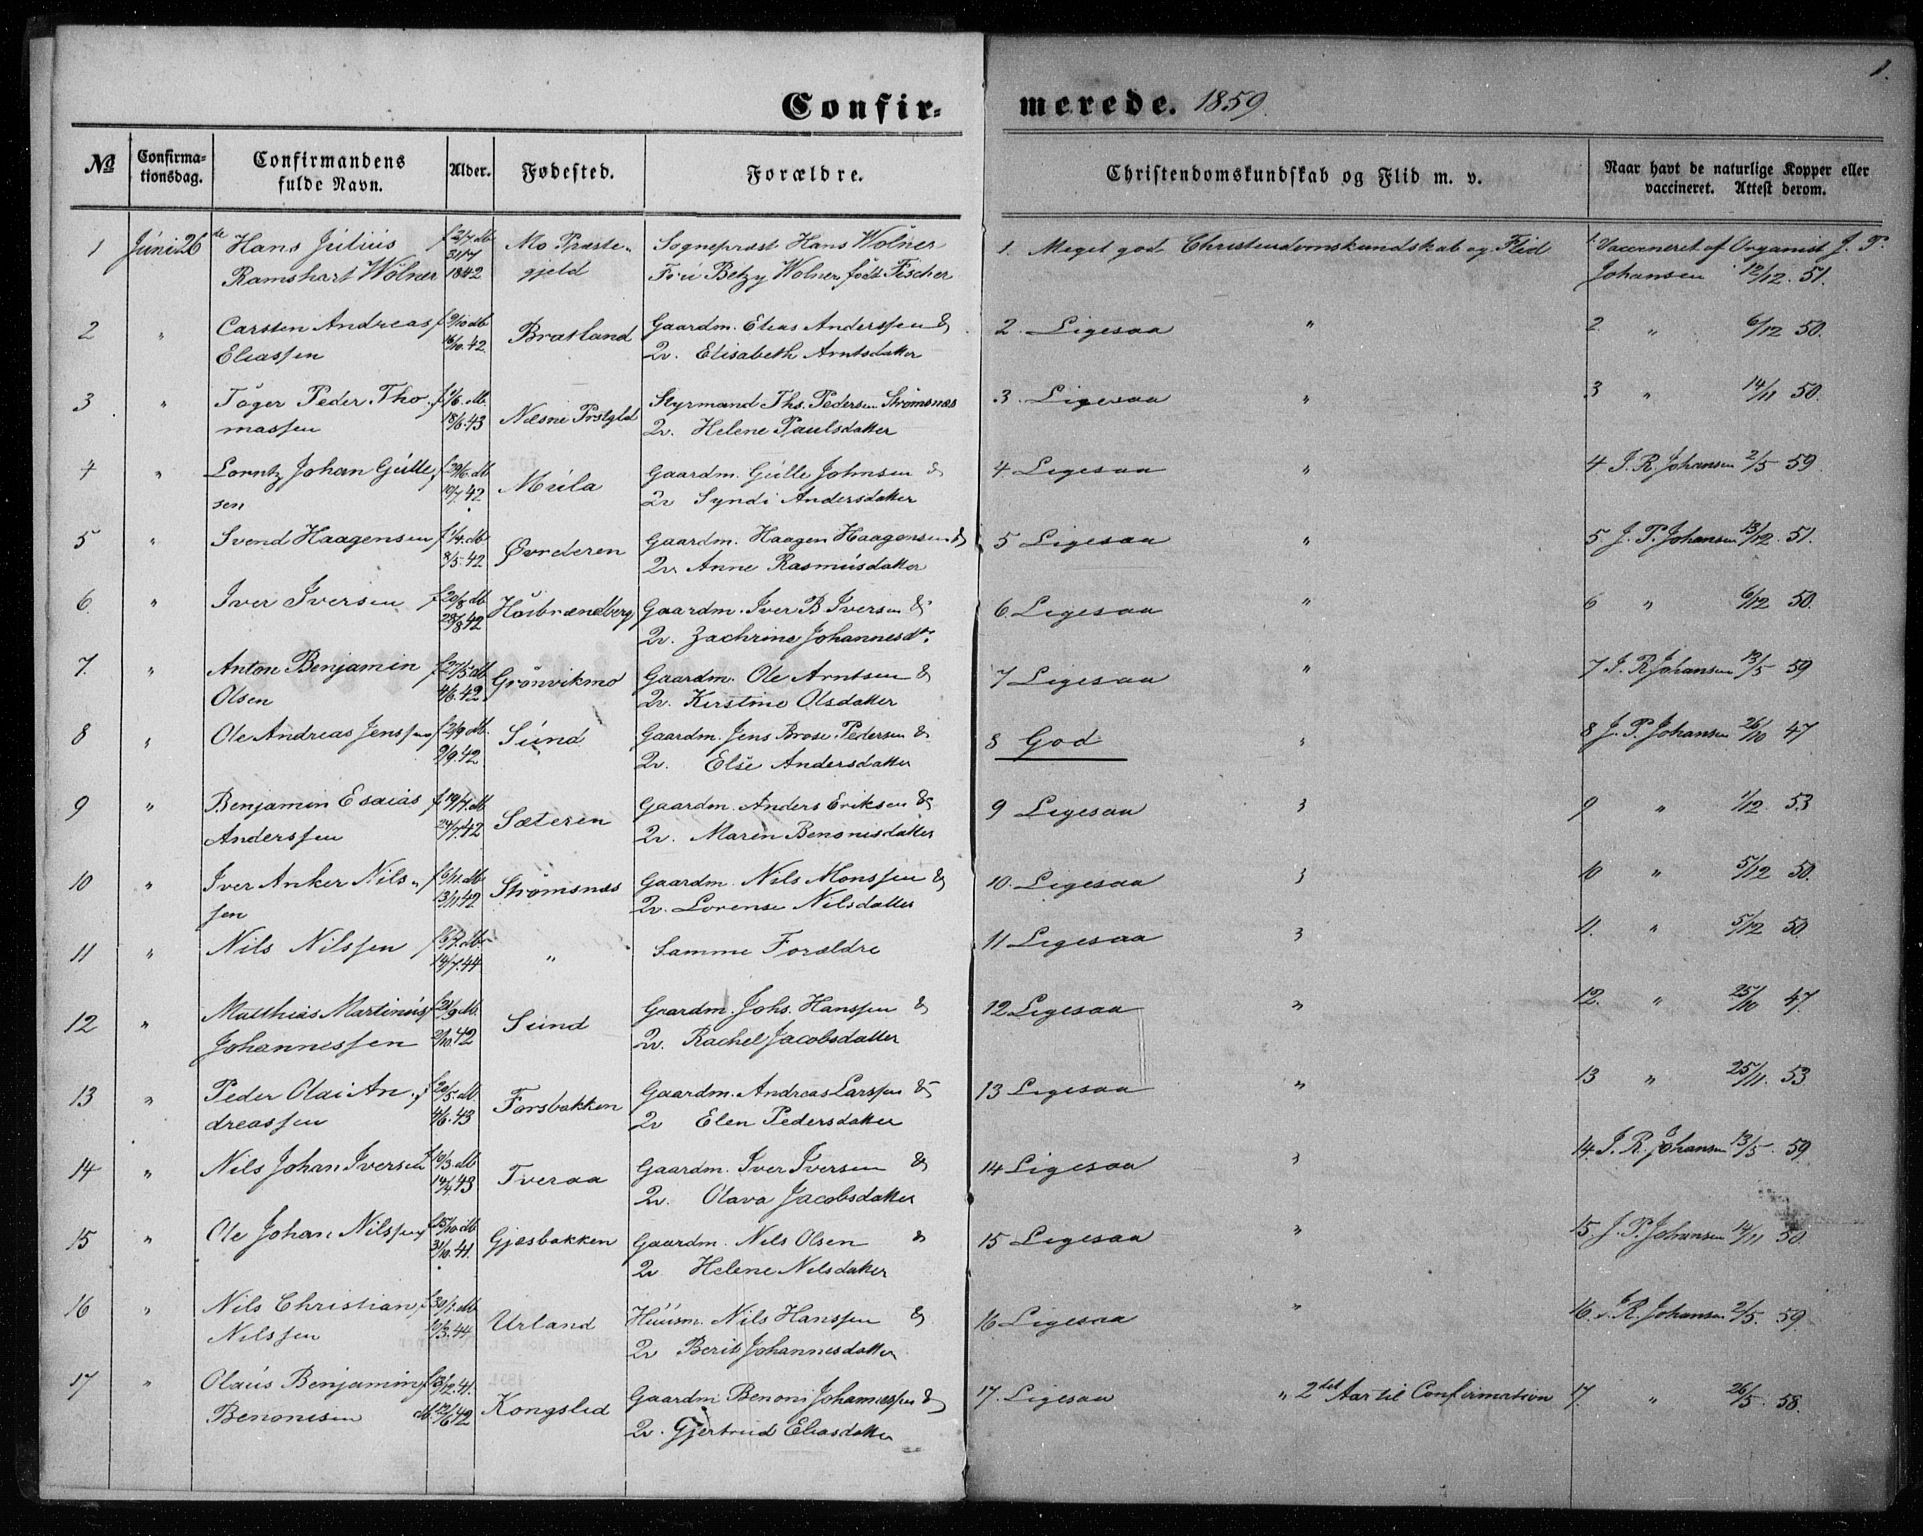 1.
Confir- merede. 1859.
No Confirma-tionsdag. Confirmandens fulde Navn. Alder. Fødested. Forældre. Christendomskundskab og Flid m. v. Naar havt de naturlige Kopper eller vaccineret. Attest derom.
1 Juni 26de Hans Julius f 2/7 db Mo Præste- Sognepræst Hans Wølner 1. Meget god Christendomskundskab og Flid 1. Vaccineret af Organist J. P.
Ramshart Wølner 31/7 1842 gjeld Fru Betzy Wolner født Fischer Johansen 12/12. 51.
2 " Carsten Andreas f 9/10 db Bratland Gaardm. Elias Anderssen & 2. Ligesaa " 2 " 6/12 50.
Eliassen 16/10. 42. Qv. Elisabeth Arntsdatter
3 " Töger Peder Tho- f 1/6. db. Næsne Prstgld Styrmand Ths. Pedersen Strömsnæs 3. Ligesaa " 3 " 14/11 50.
massen 18/6. 43 Qv. Helene Paulsdatter
4 " Lorntz Johan Gulle- f 29/6. db Mula Gaardm. Gulle Johnsen & 4. Ligesaa " 4 J. R. Johansen 2/5 59.
sen 10/7. 42 Qv. Syndi Andersdatter
5 " Svend Haagensen f 1/4. db Øvrderen Gaardm. Haagen Haagensen & 5 Ligesaa " 5 J. P. Johansen 13/12. 51.
8/5. 42 Qv. Anne Rasmusdatter
6. " Iver Iversen f 20/8 db Husbrændberg Gaardm. Iver B. Iversen & 6. Ligesaa " 6 " 6/12 50.
28/8 42 Qv. Zachrine Johannesdtr.
7. " Anton Benjamin f 27/5 db Grønvikmo Gaardm. Ole Arntsen & 7 Ligesaa " 7 J. R. Johansen 13/5 59
Olsen 4/6. 42. Qv. Kirstine Olsdatter
8 " Ole Andreas Jenssen f 2/9 db. Sund Gaardm. Jens Brose Pedersen & 8 God " 8 J. P. Johansen 26/10 47
9/9. 42 Qv. Else Andersdatter
9 " Benjamin Esaias f 19/7. db Sæteren Gaardm. Anders Eriksen & 9 Ligesaa " 9 " 1/12. 53
Anderssen 24/7. 42 Qv. Maren Benonisdatter
10 " Iver Anker Nils- f 6/11. db Strømsnæs Gaardm. Nils Monssen & 10. Ligesaa " 10 " 5/12 50.
sen 13/11 42 Qv. Lorense Nilsdatter
11 " Nils Nilssen f 6/7. db " Samme Forældre 11 Ligesaa " 11. " 5/12 50.
14/7. 44
12 " Matthias Martinus f 21/9 db. Sund Gaardm. Johs. Hanssen & 12 Ligesaa " 12. " 25/10 47.
Johannessen 2/10. 42 Qv. Rachel Jacobsdatter
13 " Peder Olai An- f 20/5. db. Forsbakken Gaardm. Andreas Larssen & 13 Ligesaa " 13 " 25/11. 53
dreassen 4/6. 43 Qv Elen Pedersdatter
14 " Nils Johan Iversen f 10/3. db Tveraa Gaardm. Iver Iversen & 14 Ligesaa " 14. J. R. Johansen 13/5. 59.
14/4 43 Qv. Olava Jacobsdatter
15 " Ole Johan Nilssen f 15/10 db Gjæsbakken Gaardm. Nils Olsen & 15 Ligesaa " 15. J. P. Johansen 14/11 50.
31/10. 41. Qv Helene Nilsdatter
16 " Nils Christian f 30/1. db. Urland Huusm. Nils Hanssen & 16 Ligesaa " 16. R. Johansen 2/5. 59.
Nilssen 10/3. 44 Qv Berit Johannesdatter
17 " Olaus Benjamin f 13/12. 41. Kongslid Gaardm Benoni Johannessen & 17. Ligesaa " 2det Aar til Confirmation 17. " 26/5. 58.
Benonisen db. 12/6 42 Qv. Gjertrud Eliasdatter